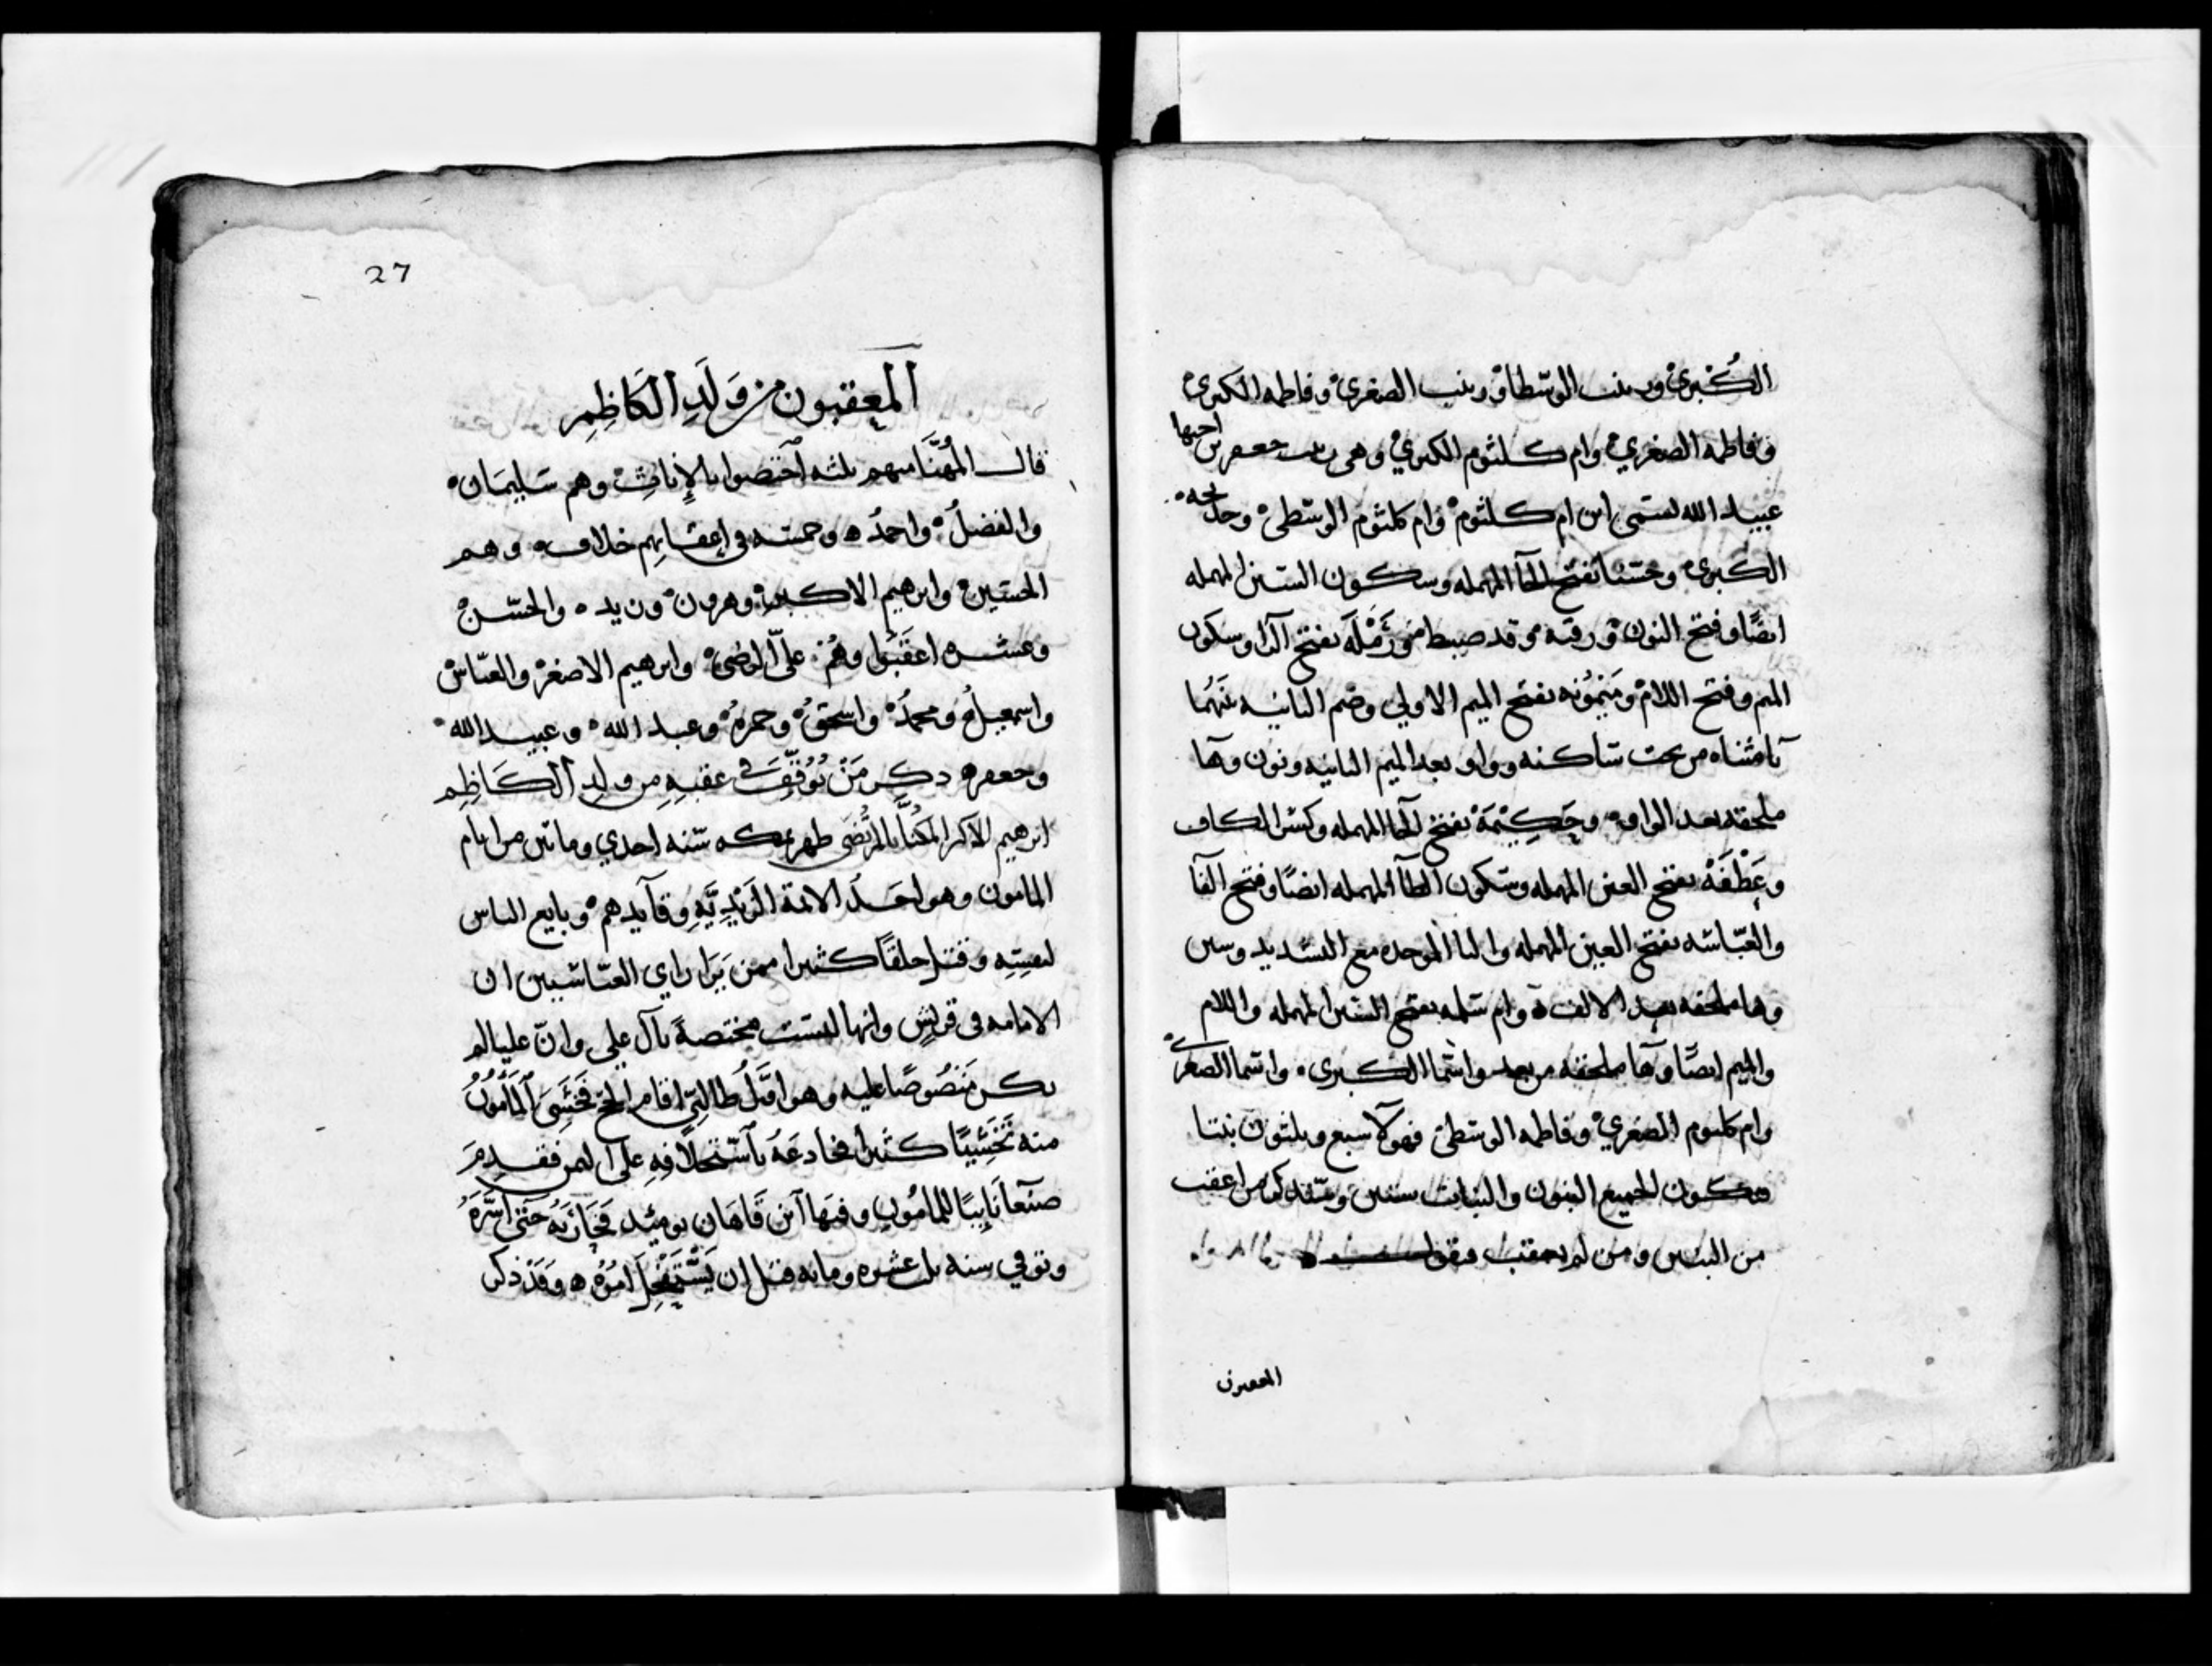 الكُبْرى وزينب الوسطا وزينب الصغرى وفاطمه الكبرى
وفاطمه الصغرى وام كلثوم الكبرى وهى بنت جعفر بن اخيها
عبيد الله تسمى ابن ام كلثوم وام كلثوم الوسطى وخديجه
الكبرى وحسنا بفتح الحآ المهمله وسكون السين المهمله
ايضًا وفتح النون ورقيه وقد ضبط ورَمْلَه بفتح الرا وسكون
الميم وفتح اللام ومَيْمُونه بفتح الميم الاولى وضم الثانيه بَيْنَهُما
يآ مثناه من تحت ساكنه وواو بعد الميم الثانيه ونون وهآ
ملحقه بعد الواو وحَكِيْمَة بفتح الحا المهمله وكسر الكاف
وعَطْفَهْ بفتح العين المهمله وسكون الطآ المهمله ايضًا وفتح الفآ
والعبّاسه بفتح العين المهمله والبا الموحده مع التشديد وسين
وها ملحقه بعد الالف ه وام سلمه بفتح السين المهمله واللام
والميم ايضًا وهآ ملحقه من بعد واسما الكبرى واسما الصغرى
وام كلثوم الصغرى وفاطمه الوسطى فهولآ سبع وثلثون بنتا
فيكون لجميع البنون والبنات ستين من اعقب
من البنين ومن لم يعقب فنقول
المعقبون
27
المعقبون من وَلَدِ الكَاظِمِ
قال المُهَنَّا منهم ثلثه اختصوا بالإناثِ وهم سليمَان
والفضلُ واحمدُ ه وخمسه فى اعقابهم خلاف وهم
الحسين وابرهيم الاكبر وهرون وزيد والحسن
وعشره اعقبوا وهُم علىّ الرضى وابرهيم الاصغر والعباس
واسمعيلُ ومحمدُ واسحقُ وحمزهُ وعبد الله وعبيد الله
وجعفر ه ذكر مَنْ تُوُقِّفَ فى عقبِهِ من ولدِ الكَاظِمِ
ابرهيم الاكبر المكنّا بالمرتضى ظهر بمكه سنه احدي وماتين من ايام
المامون وهو احَد الائمة الزيدِيَّهِ وقآيدهم وبايع الناس
لنفسِهِ وقتل خلقًا كثيرا ممن يَرَا راي العباسيين ان
الامامه فى قريشٍ وانها ليست مختصةً بآل على وانّ عليا لم
يكن مَنصُوصًا عليه وهو اوّلُ طالبىّ اقام الحج فخَشِىَ المَأمُونُ
منه كثيرا فخادعَهُ باستخلافِهِ على اليمن فقدِمَ
صنعآ نَايِبًا للمامُون وفيها ابن مَاهَان يوميذ فحَارَبَهُ حتى اسَرَهُ
وتوفي سنه ثلث عشره ومايه قبل ان يَسْتَفْحِل امْرُه ه وَقَدْ ذكر